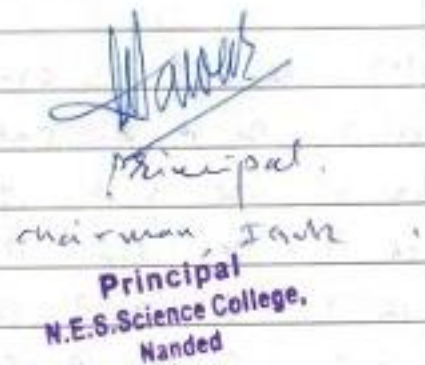 Principal.
Chairman,
Principal
N.E.S.Science College,
Nanded